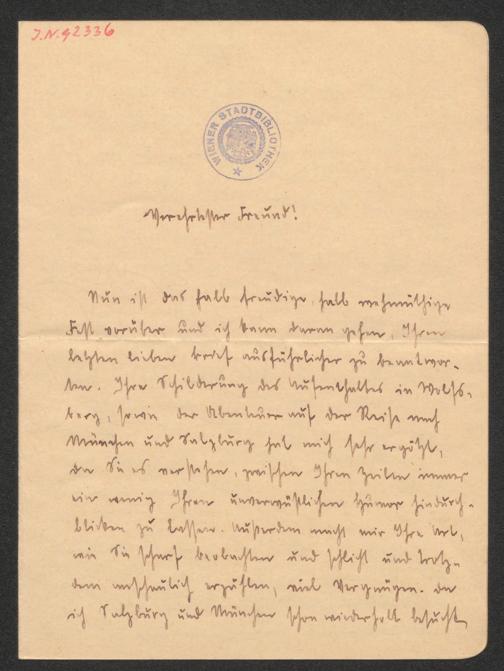 J.N. 92336
WIENER STADTBIBLIOTHEK
Verehrtester Freund!
Nun ist das halb freudige, halb wehmüthige
Fest vorüber und ich kann daran gehen, Ihren
letzten lieben Brief ausführlicher zu beantwor-
ten. Ihre Schilderung des Aufenthaltes in Wolfs-
berg, sowie der Abenteuer auf der Reise nach
München und Salzburg hat mich sehr ergötzt,
da Sie es verstehen, zwischen Ihren Zeilen immer
ein wenig Ihren unverwüstlichen Humor hindurch-
blicken zu lassen. Außerdem macht mir Ihre Art,
wie Sie scharf beobachten und schlicht und trotz-
dem anschaulich erzählen, viel Vergnügen. Da
ich Salzburg und München schon wiederholt besucht